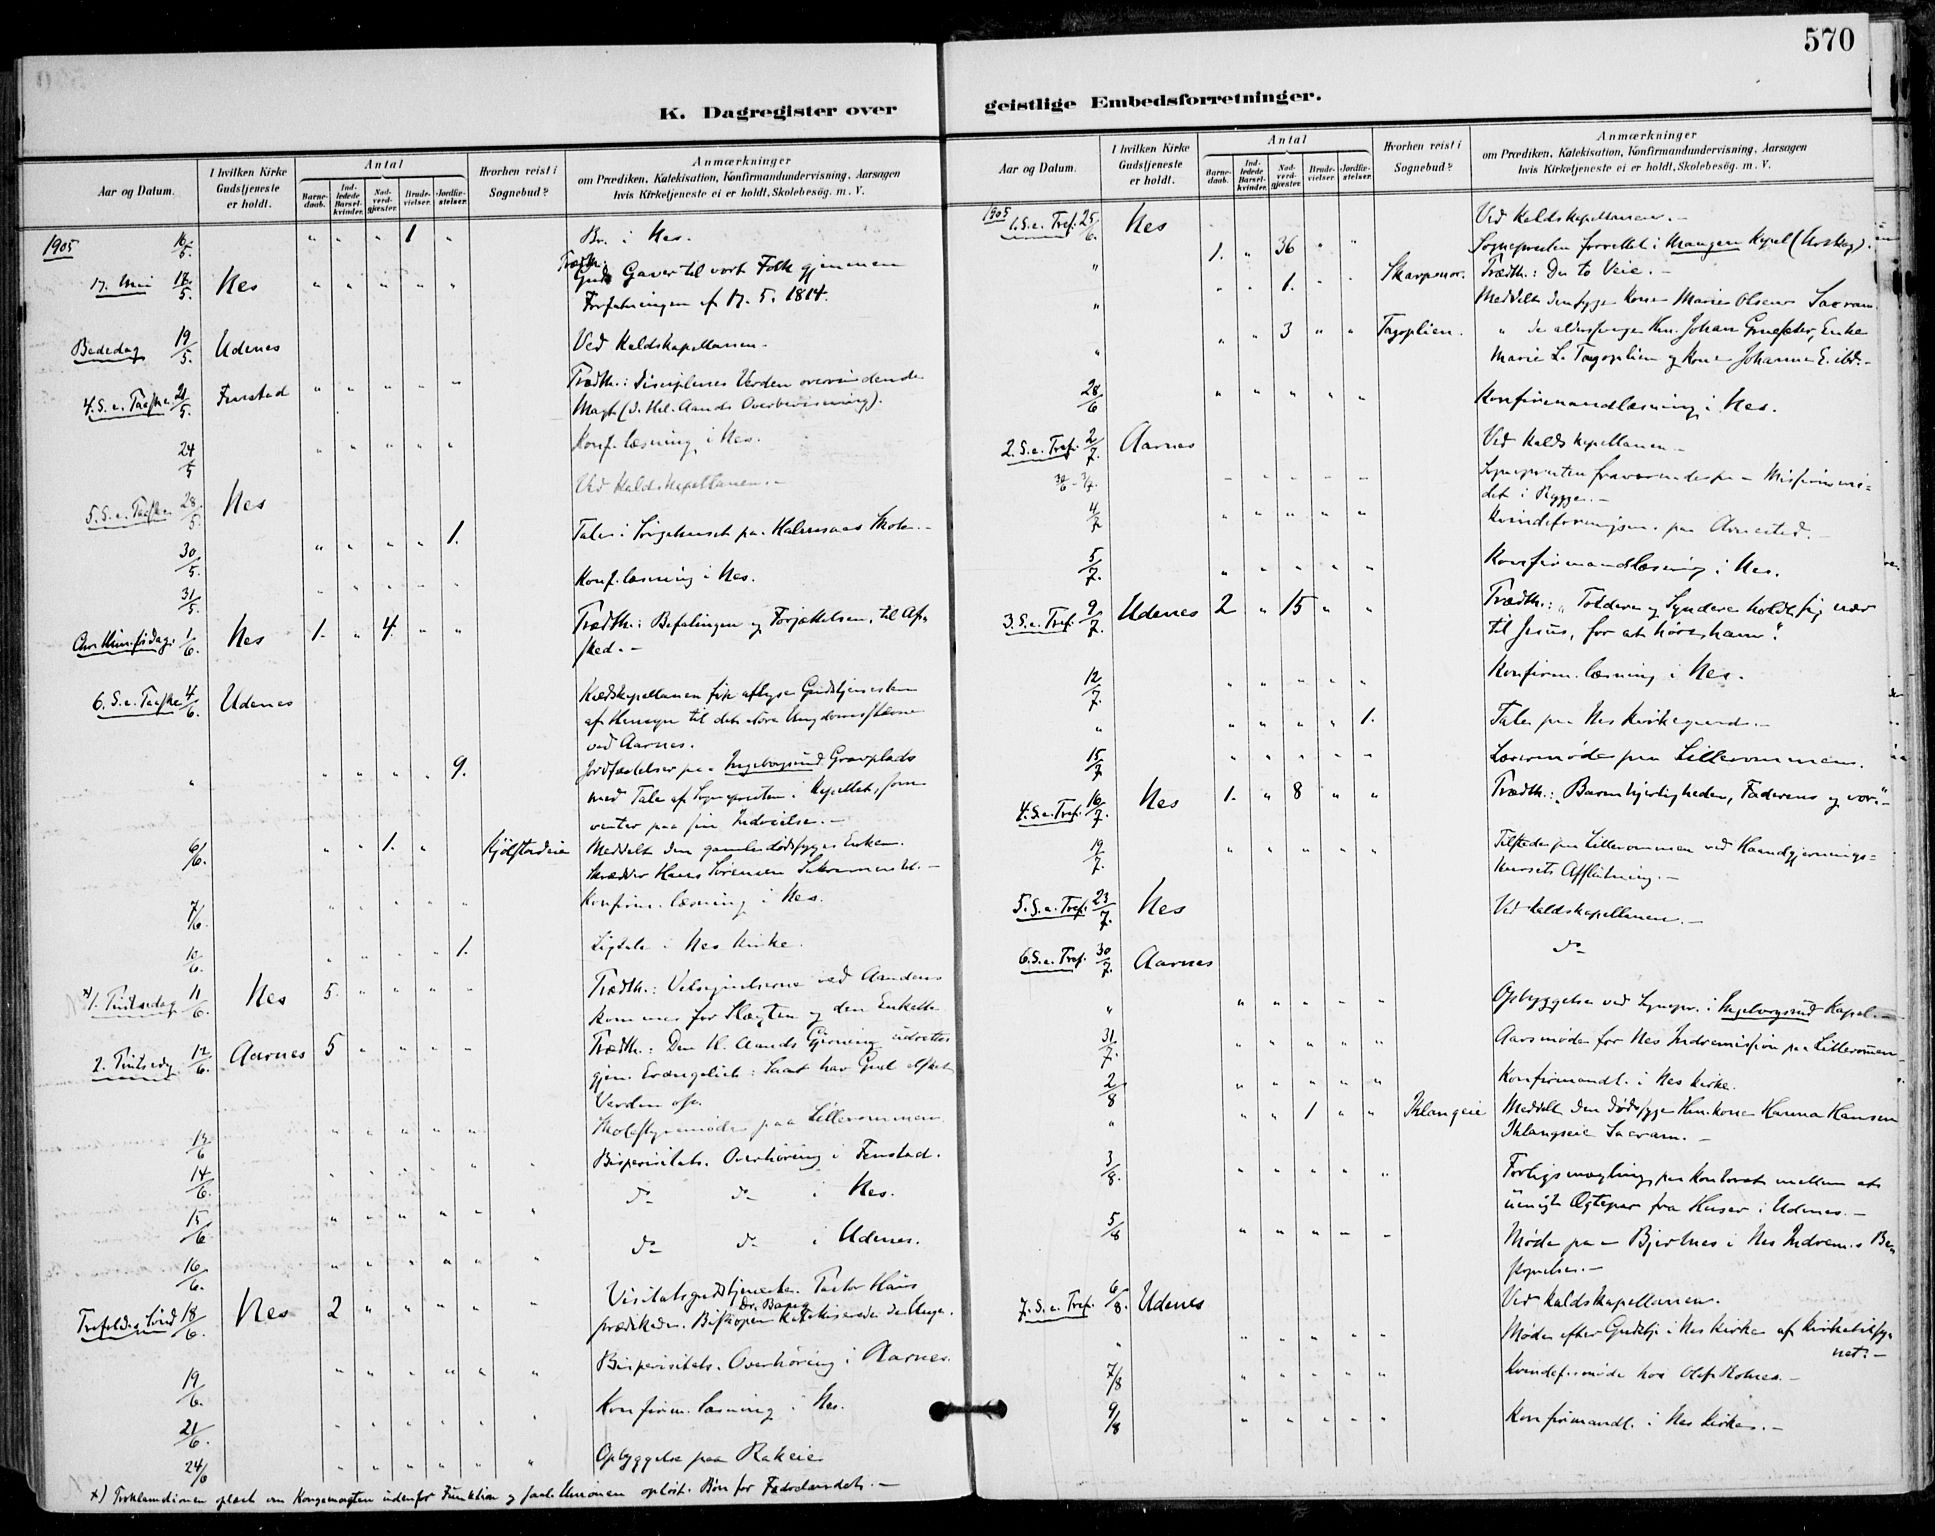 570
K. Dagregister over
geistlige Embedsforretninger.
Aar og Datum.
I hvilken Kirke Gudstjeneste er holdt.
Antal
Barnedaab.
Indledede Barselkvinder.
Nadverdgjæster.
Brudevielser.
Jordfæstelser.
Hvorhen reist i Sognebud?
Anmærkninger
om Prædiken, Katekisation, Konfirmandundervisning, Aarsagen
hvis Kirketjeneste ei er holdt, Skolebesög. m. V.
1905 16/5 " " " 1 " Br. i Nes.
17. Mai 17/5. Nes " " " " " Guds Gaver til vort Folk gjennem
Forfatningen af 17. 5. 1814.
Bededag 19/5. Udenes Ved Kaldskapellanen.
4. S. e. Paaske 21/5. Fenstad " " " " " Prædk.: Disciplenes Verden overvindende
Magt (d. Hel. Aands Overbevisning).
24/5 " " " " " Konf. læsning i Nes.
5. S. e. Paaske 28/5. Nes Ved Kaldskapellanen.-
30/5. " " " " 1. Tale i Sørgehuset paa Skole.-
31/5. " " " " Konf. læsning i Nes.
Chr. Himfrdag. 1/6. Nes 1. " 4. " " Prædk.: Befalingen og Forjættelsen, til Af-
sked.-
6. S. e. Paaske 4/6. Udenes Kaldskapellanen fik aflyse Gudstjenesten
af Hensyn til det store Ungdomsstævne
ved Aarnes.
" " " " " 9. Jordfæstelser paa Ingeborgsrud Gravplads
med Tale af Sognepresten i Kapellet, som
venter paa sin Indvielse.-
6/6. " " 1. " Kjölstadeie Meddelt den gamle dødssyge Enkem.
Skrædder Hans Sørensen Sakramentet.-
7/6. " " " " " Konfirm. læsning i Nes.
10/6. " " " " 1. Ligtale i Nes Kirke.
*) 1. Pintsedag 11/6. Nes 5. " " " " Prædk.: Velsignelserne ved Aandens
Komme for Slægten og den Enkelte
2. Pintsedag 12/6. Aarnes 5 " " " " Prædk.: Den H. Aands Gjerning udrettes
gjen. Evangeliet: Saa har Gud elsket
Verden osv.
13/6 " " " " " Skolestyremøde paa Lilleromnen
14/6. " " " " " Bispevisitats. Overhøring i Fenstad.
15/6 " " " " " do do i Nes.
16/6. " " " " " do do i Udenes.
Trefoldig. Sönd 18/6. Nes 2 " " " " Visitatsgudstjeneste. Pastor Hans
Dr. Bang
prædikede. Biskopen katekiserede de Unge.
19/6. " " " " " Bispevisitats. Overhøring i Aarnes.
21/6. " " " " " Konfirm. læsning i Nes.
24/6 " " " " " Opbyggelse paa Rakeie
*) Proklamationen oplæst om Kongemagten udenfor Funktion og Unionen opløst. Bön for Fædrelandet.-
Aar og Datum.
I hvilken Kirke Gudstjeneste er holdt.
Antal
Barnedaab.
Indledede Barselkvinder.
Nadverdgjæster.
Brudevielser.
Jordfæstelser.
Hvorhen reist i Sognebud?
Anmærkninger
om Prædiken, Katekisation, Konfirmandundervisning, Aarsagen
hvis Kirketjeneste ei er holdt, Skolebesög. m. V.
1905 1. S. e. Tref. 25/6. Nes Ved Kaldskapellanen.-
" 1. " 36 " " Sognepresten forrettet i Mangen Kapel (Urskog).
Prædk.: De to Veie.-
" " " 1. " " Skarpsnor. Meddelt den syge Kone Marie Olsen Sacram.
" " " 3 " " Tagoplien. " de alderssvage Hm. Johan Enke
Marie L. Tagoplien og Kone Johanne E. ibd.-
28/6 " " " " " Konfirmandlæsning i Nes.
2. S. e. Tref. 2/7. Aarnes Ved Kaldskapellanen-
30/6 - 3/7. - - - - - Sognepresten fraværende paa Missionsmö-
det i Rygge.-
4/7 " " " " " Kvindeforeningen paa Arnested.-
5/7. " " " " " Konfirmandlæsning i Nes.
3. S. e. Tref. 9/7. Udenes 2 " 15 " " Prædk.: "Toldere og Syndere holdt sig nær
til Jesus, for at høre ham".
12/7. " " " " " Konfirm. læsning i Nes.
" " " " " 1. Tale paa Nes Kirkegaard.-
15/7 " " " " " Læsermøde paa Lilleromnen.
4. S. e. Tref. 16/7. Nes 1. " 8 " " Prædk.: "Barmhjertigheden, Faderens og vor"-
19/7. " " " " " Tilstede paa Lilleromnen ved Haandgjernings-
kursets Afslutning.-
5. S. e. Tref. 23/7. Nes Ved Kaldskapellanen.-
6. S. e. Tref. 30/7. Aarnes do
" " " " " " Opbyggelse ved Sognepr. i Ingeborgsrud Kapel.-
31/7. " " " " " Aarsmøde for Nes Indremission paa Lilleromnen-
2/8 " " " " " Konfirmandl. i Nes Kirke.
" " " 1 " " Iklangeie Meddelt den dødssyge Hm. kone Hanna Hansen
Iklangseie Sacram.-
3/8. " " " " " Forligsmægling paa Kontoret mellem et
uenigt Ægtepar fra Huser i Udenes.-
5/8 " " " " - Møde paa Bjertnes i Nes Indrem.s Be-
styrelse.-
7. S. e. Tref. 6/8. Udenes Ved Kaldskapellanen.
" " " " " " Møde efter Gudstj. i Nes Kirke af Kirketilsy-
net.-
7/8 " " " " " Kvindef. møde hos Olaf Holnes.-
9/8 " " " " " Konfirmandl. i Nes Kirke.-